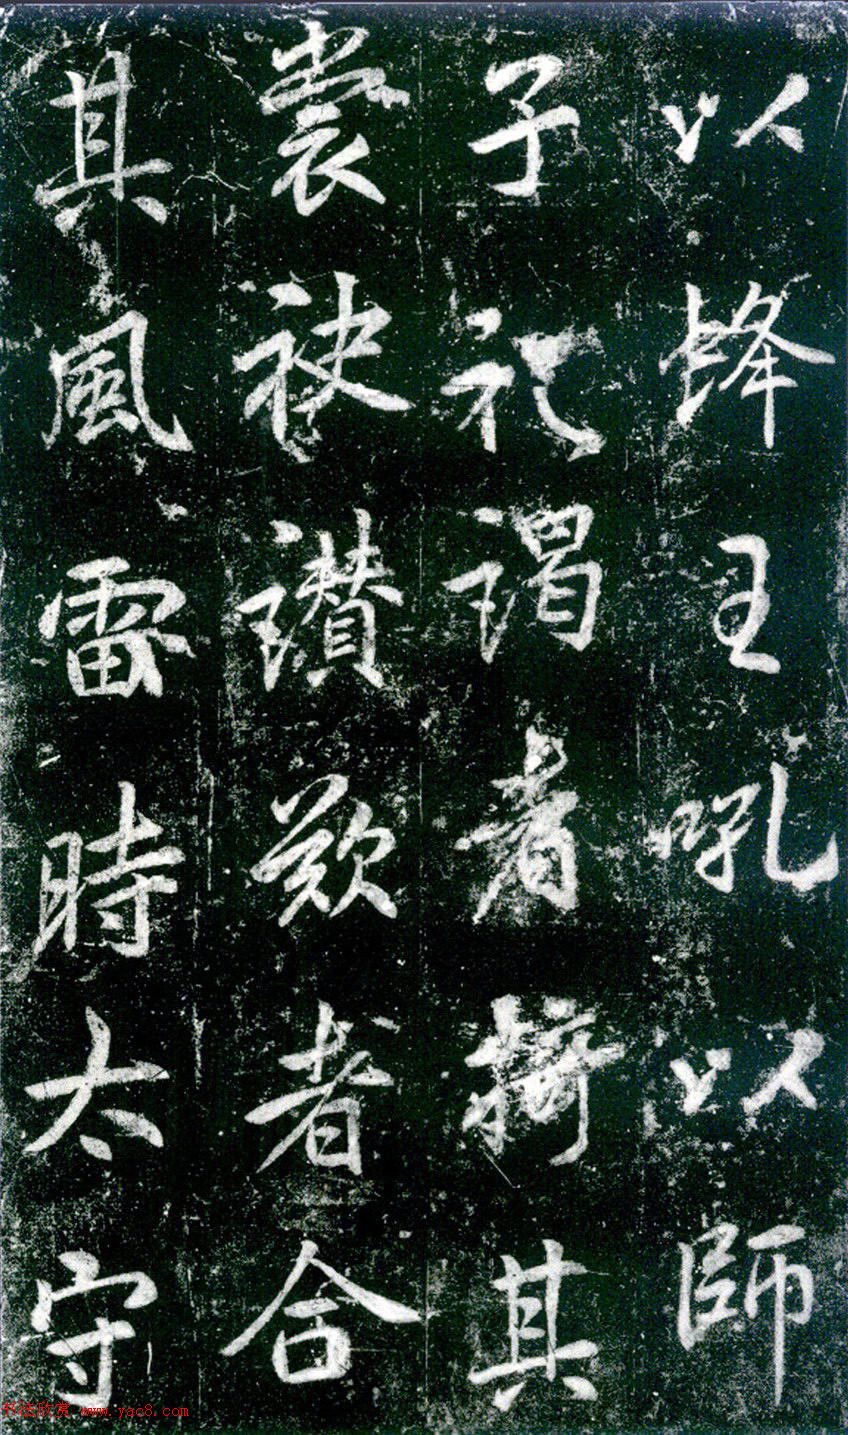 以蜂王吼以師
子礼謁者掎其
裳袂讚歎者合
其風雷時太守
书法欣赏 www.yac8.com